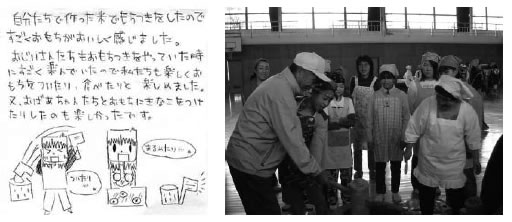 自分たちで作った米でもちつきをしたので
すごくおもちがおいしく感じました。
おじいさんたちもおもちつきをやっていた時
にすごく楽んでいたので私たちも楽しくお
もちをついたり、食がたりと楽しめました。
又、おばあちゃんたちとおもちにきなこをつけ
たりしたのも楽しかったです。
まるめたり…
ついたり